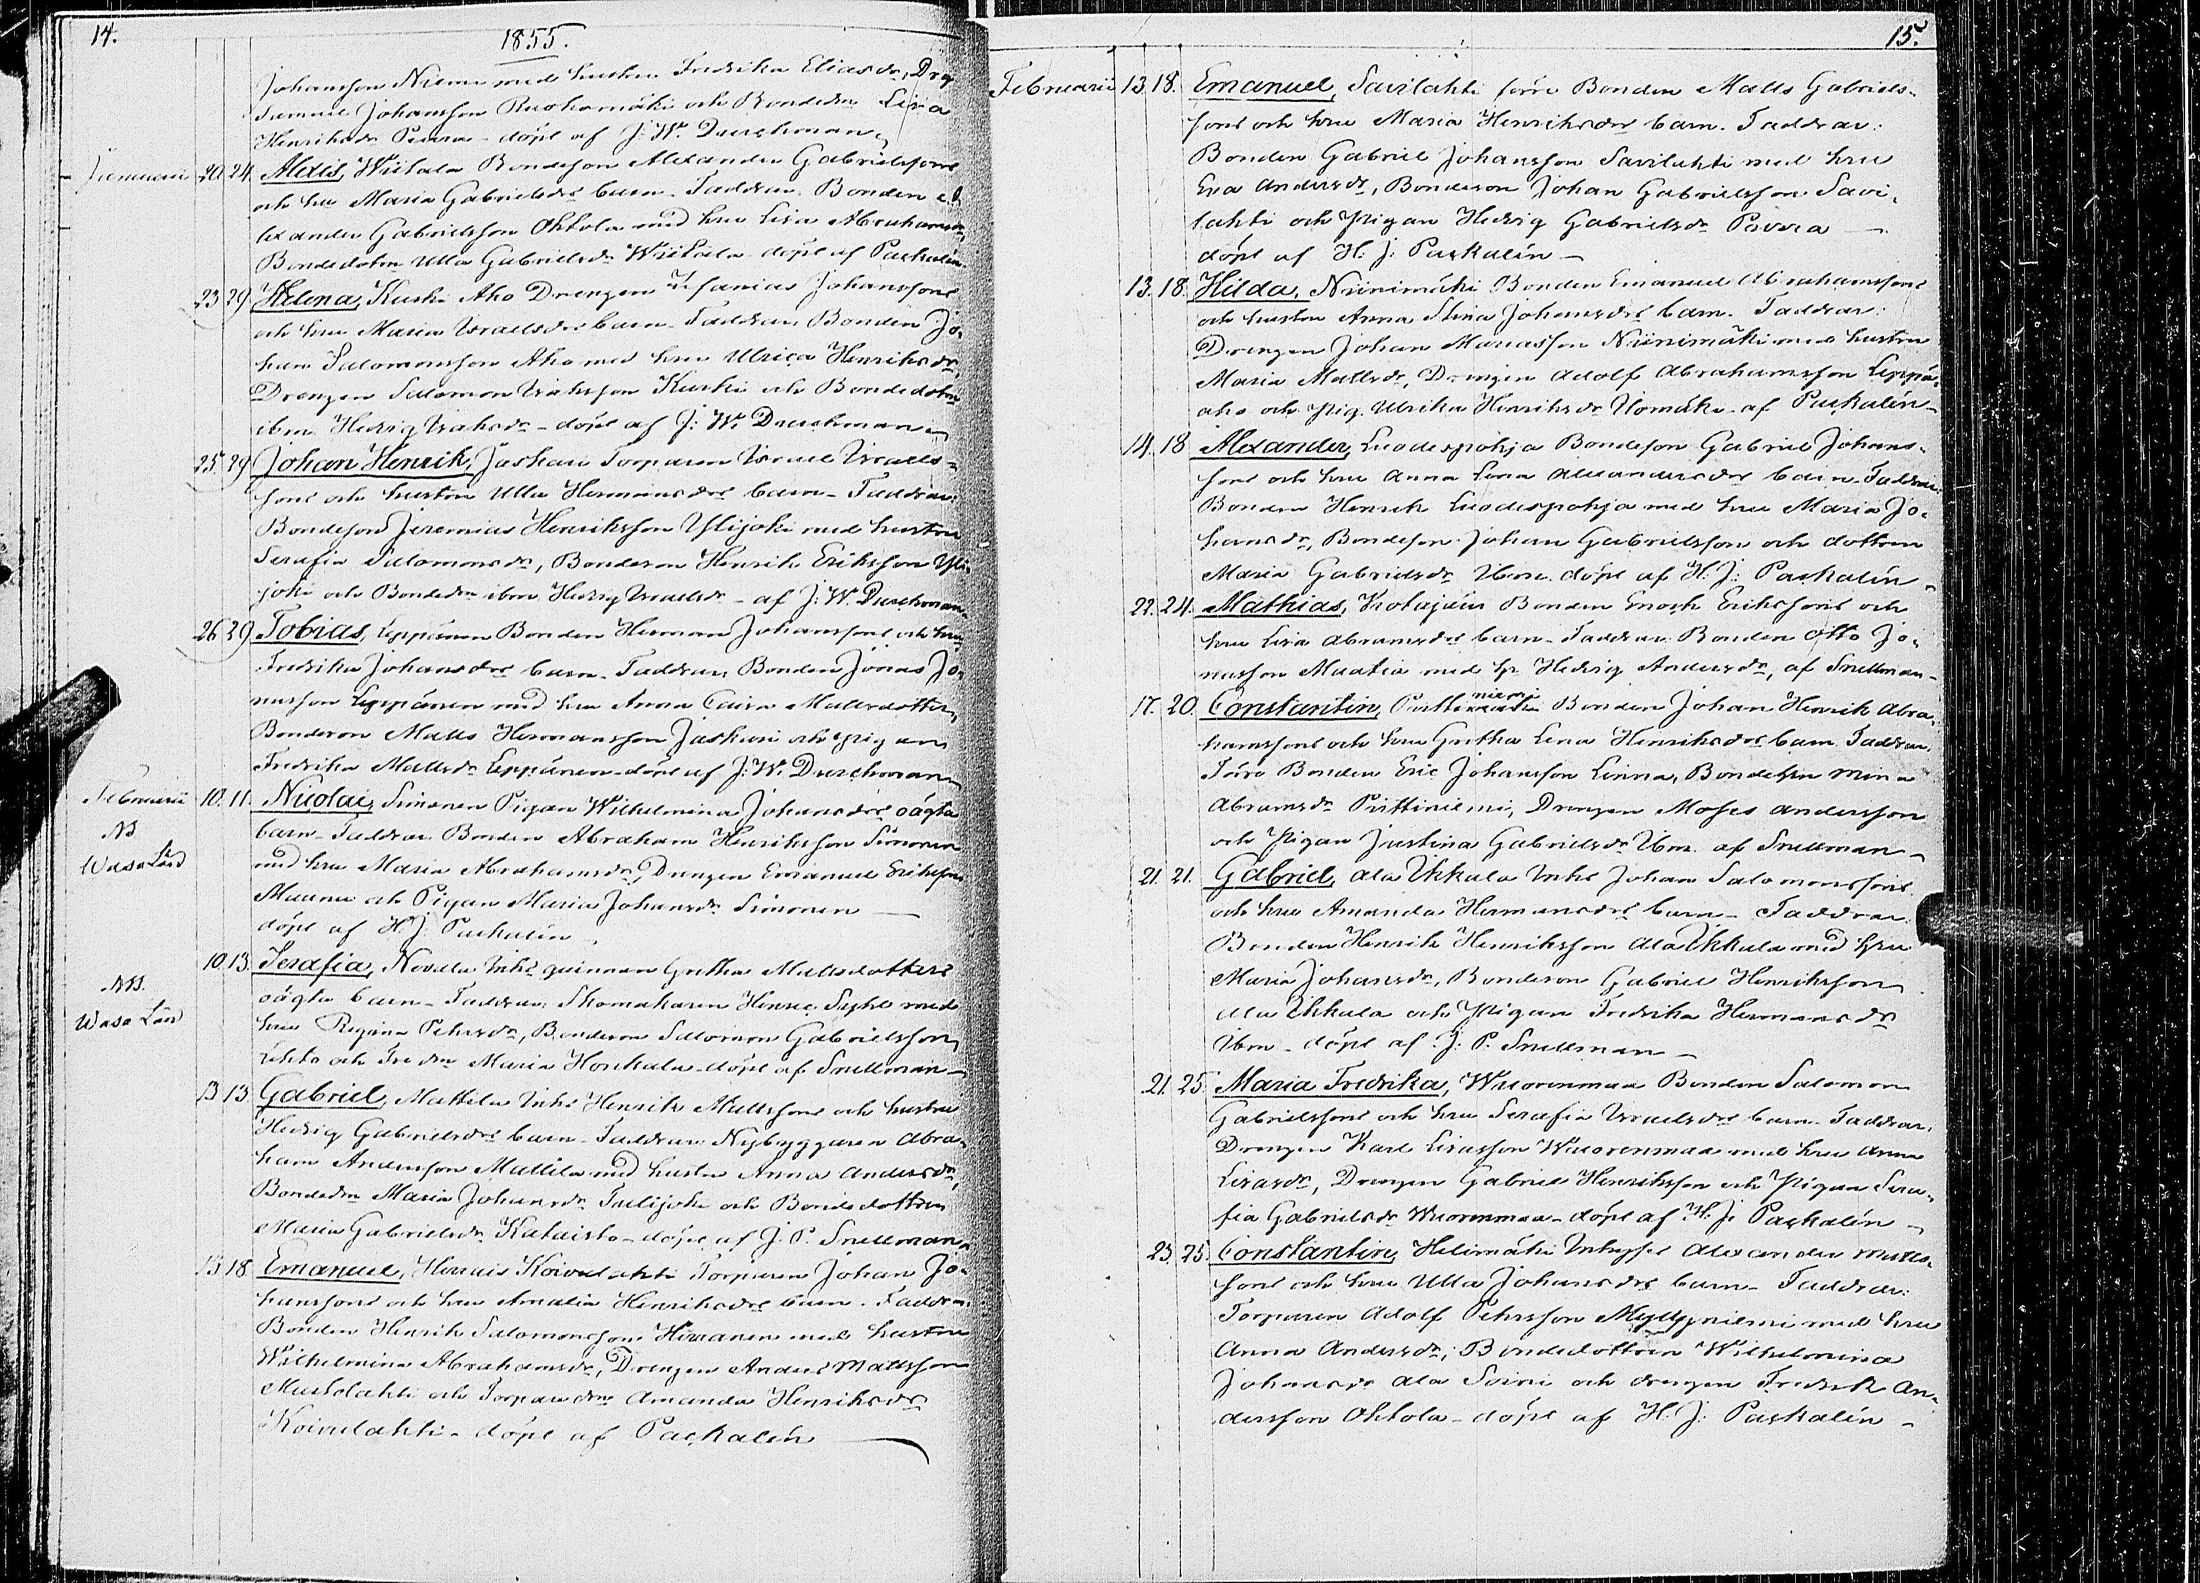 14.
1855.
Johansson Niemi med hustru Fredrika Eliasdr, Drg
Samuel Johansson Ruohomäki och Bondedrn Lisa
Henriksdr Peura - döpt af J. W. Durchman
Januarii 20. 24. Alexis, Wiitala Bondeson Alexander Gabrielssons
och hru Maria Gabrielsdrs barn. Faddrar Bonden A
lexander Gabrielsson Ohtola med hru Lisa Abrahamsdr,
Bondedotrn Ulla Gabrielsdr Wiitala döpt af Paskalin
23 29 Helena, Kuski Aho Drengen Zefanias Johanssons
och hru Maria Israelsdrs barn. Faddrar Bonden Jo-
han Salomonsson Aho med hru Ulrica Henriksdr,
Drengen Salomon Isaksson Kuski och Bondedotrn
ibm Hedvig Isaksdr - döpt af J. W. Durchman
25. 29 Johan Henrik, Jaskari Torparen Israel Israels-
sons och hustru Ulla Hermansdrs barn - Faddrar:
Bondeson Jeremias Henriksson Ylijoki med hustru
Serafia Salomonsdr, Bondeson Henrik Eriksson Yli
joki och Bondedrn ibm Hedvig Israelsdr - af J. W. Durchman
26 29 Tobias, Leppänen Bonden Herman Johanssons och hru
Fredrika Johansdrs barn. Faddrar Bonden Jonas Jo-
nasson Leppänen med hru Anna Caisa Mattsdotter,
Bondeson Matts Hermansson Jaskari och pigan
Fredrika Mattsdr Leppänen döpt af J. W. Durchman
Februarii 10. 11. Nicolai, Simonen Pigan Wilhelmina Johansdrs oägta
NB
Wasa Län
barn. Faddrar Bonden Abraham Henriksson Simonen
med hru Maria Abrahamsdr, Drengen Emanuel Eriksson
Maunu och Pigan Maria Johansdr Simonen
döpt af H. J. Paskalin
10. 13. Serafia, Novala Inhs qvinnan Gretha Mattsdotters
NB.
Wasa Län
oägta barn - Faddrar: Skomakaren Henric med
hru Regina Pehrsdr, Bondeson Salomon Gabrielsson
och Maria Honkala döpt af Snellman
13 13. Gabriel, Mattila Inhs Henrik Mattssons och hustru
Hedvig Gabrielsdrs barn - Faddrar Nybyggaren Abra-
ham Andersson Mattila med hustru Anna Andersdr,
Bondedrn Maria Johansdr Tulijoki och Bondedottren
Maria Gabrielsdr Kataisto - döpt af J. P. Snellman
13 18. Emanuel, Koivulahti Torparen Johan Jo-
hanssons och hru Amalia Henriksdrs barn. Faddrar
Bonden Henrik Salomonsson Hirvanen med hustru
Wilhelmina Abrahamsdr, Drengen Anders Mattsson
Mustalahti och Torparedrn Amanda Henriksdr
Koivulahti - döpt af Paskalin
15.
Februarii 13. 18. Emanuel, Savilahti förre Bonden Matts Gabriels-
sons och hru Maria Henriksdrs barn. Faddrar:
Bonden Gabriel Johansson Savilahti med hru
Eva Andersdr, Bondeson Johan Gabrielsson Savi-
lahti och Pigan Hedvig Gabrielsdr Peura
döpt af H. J. Paskalin -
13. 18. Hilda, Niinimäki Bonden Emanuel Abrahamssons
och hustru Anna Stina Johansdrs barn. Faddrar:
Drengen Johan Mariasson Niinimäki med hustru
Maria Mattsdr, Drengen Adolf Abrahamsson Leppä-
aho och Pig. Ulrika Henriksdr Uomäki - af Paskalin -
14. 18 Alexander, Luodespohja Bondeson Gabriel Johans-
sons och hru Anna Lena Alexandersdrs barn. Faddrar
Bonden Henrik Luodespohja med hru Maria Jo-
hansdr, Bondeson Johan Gabrielsson och dottren
Maria Gabrielsdr Ibm döpt af H. J. Paskalin -
22. 24. Mathias, Krotajärvi Bonden Enoch Erikssons och
hru Lisa Abramsdrs barn - Faddrar Bonden Otto Jo-
nasson Maatia med hr Hedvig Andersdr, af Snellman -
17. 20. Constantin, Puttiniemi Bonden Johan Henrik Abra-
hamssons och hru Gretha Lena Henriksdrs barn. Faddrar,
Förre Bonden Eric Johansson Linna, Bondedrn Mina
Abramsdr Puttiniemi, Drengen Moses Andersson
och Pigan Justina Gabrielsdr Ibm. af Snellman -
21. 21. Gabriel, Ala Ikkala Inhs Johan Salomonssons
och hru Amanda Hermansdrs barn - Faddrar
Bonden Henrik Henriksson Ala Ikkala med hru
Maria Johansdr, Bondeson Gabriel Henriksson
Ala Ikkala och Pigan Fredrika Hermansdr
Ibm - döpt af J. P. Snellman -
21. 25. Maria Fredrika, Wuorenmaa Bonden Salomon
Gabrielssons och hru Serafia Israelsdrs barn - Faddrar,
Drengen Karl Lisasson Wuorenmaa med hru Anna
Lisasdr, Drengen Gabriel Henriksson och Pigan Sera-
fia Gabrielsdr Wuorenmaa - döpt af H. J. Paskalin -
23. 25. Constantin, Helimäki Inhyses Alexander Matts-
sons och hru Ulla Johansdrs barn - Faddrar:
Torparen Adolf Pehrsson Myllyniemi med hru
Anna Andersdr, Bondedottren Wilhelmina
Johansdr Ala Soini och drengen Fredrik An-
dersson Ohtola - döpt af H. J. Paskalin -